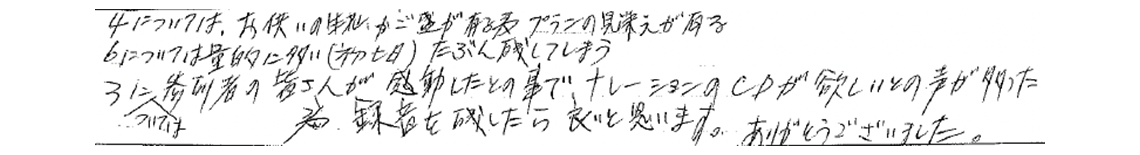 4については、お供いの生花、かご盛が有る為プランの見栄えが有る
6については量的に多い(初七日)たぶん残してしまう
3に参列者の皆さんが感動したとの事で、ナレーションのCDが欲しいとの声が多かった
ついては 為、録音を残したら良いと思います。ありがとうございました。